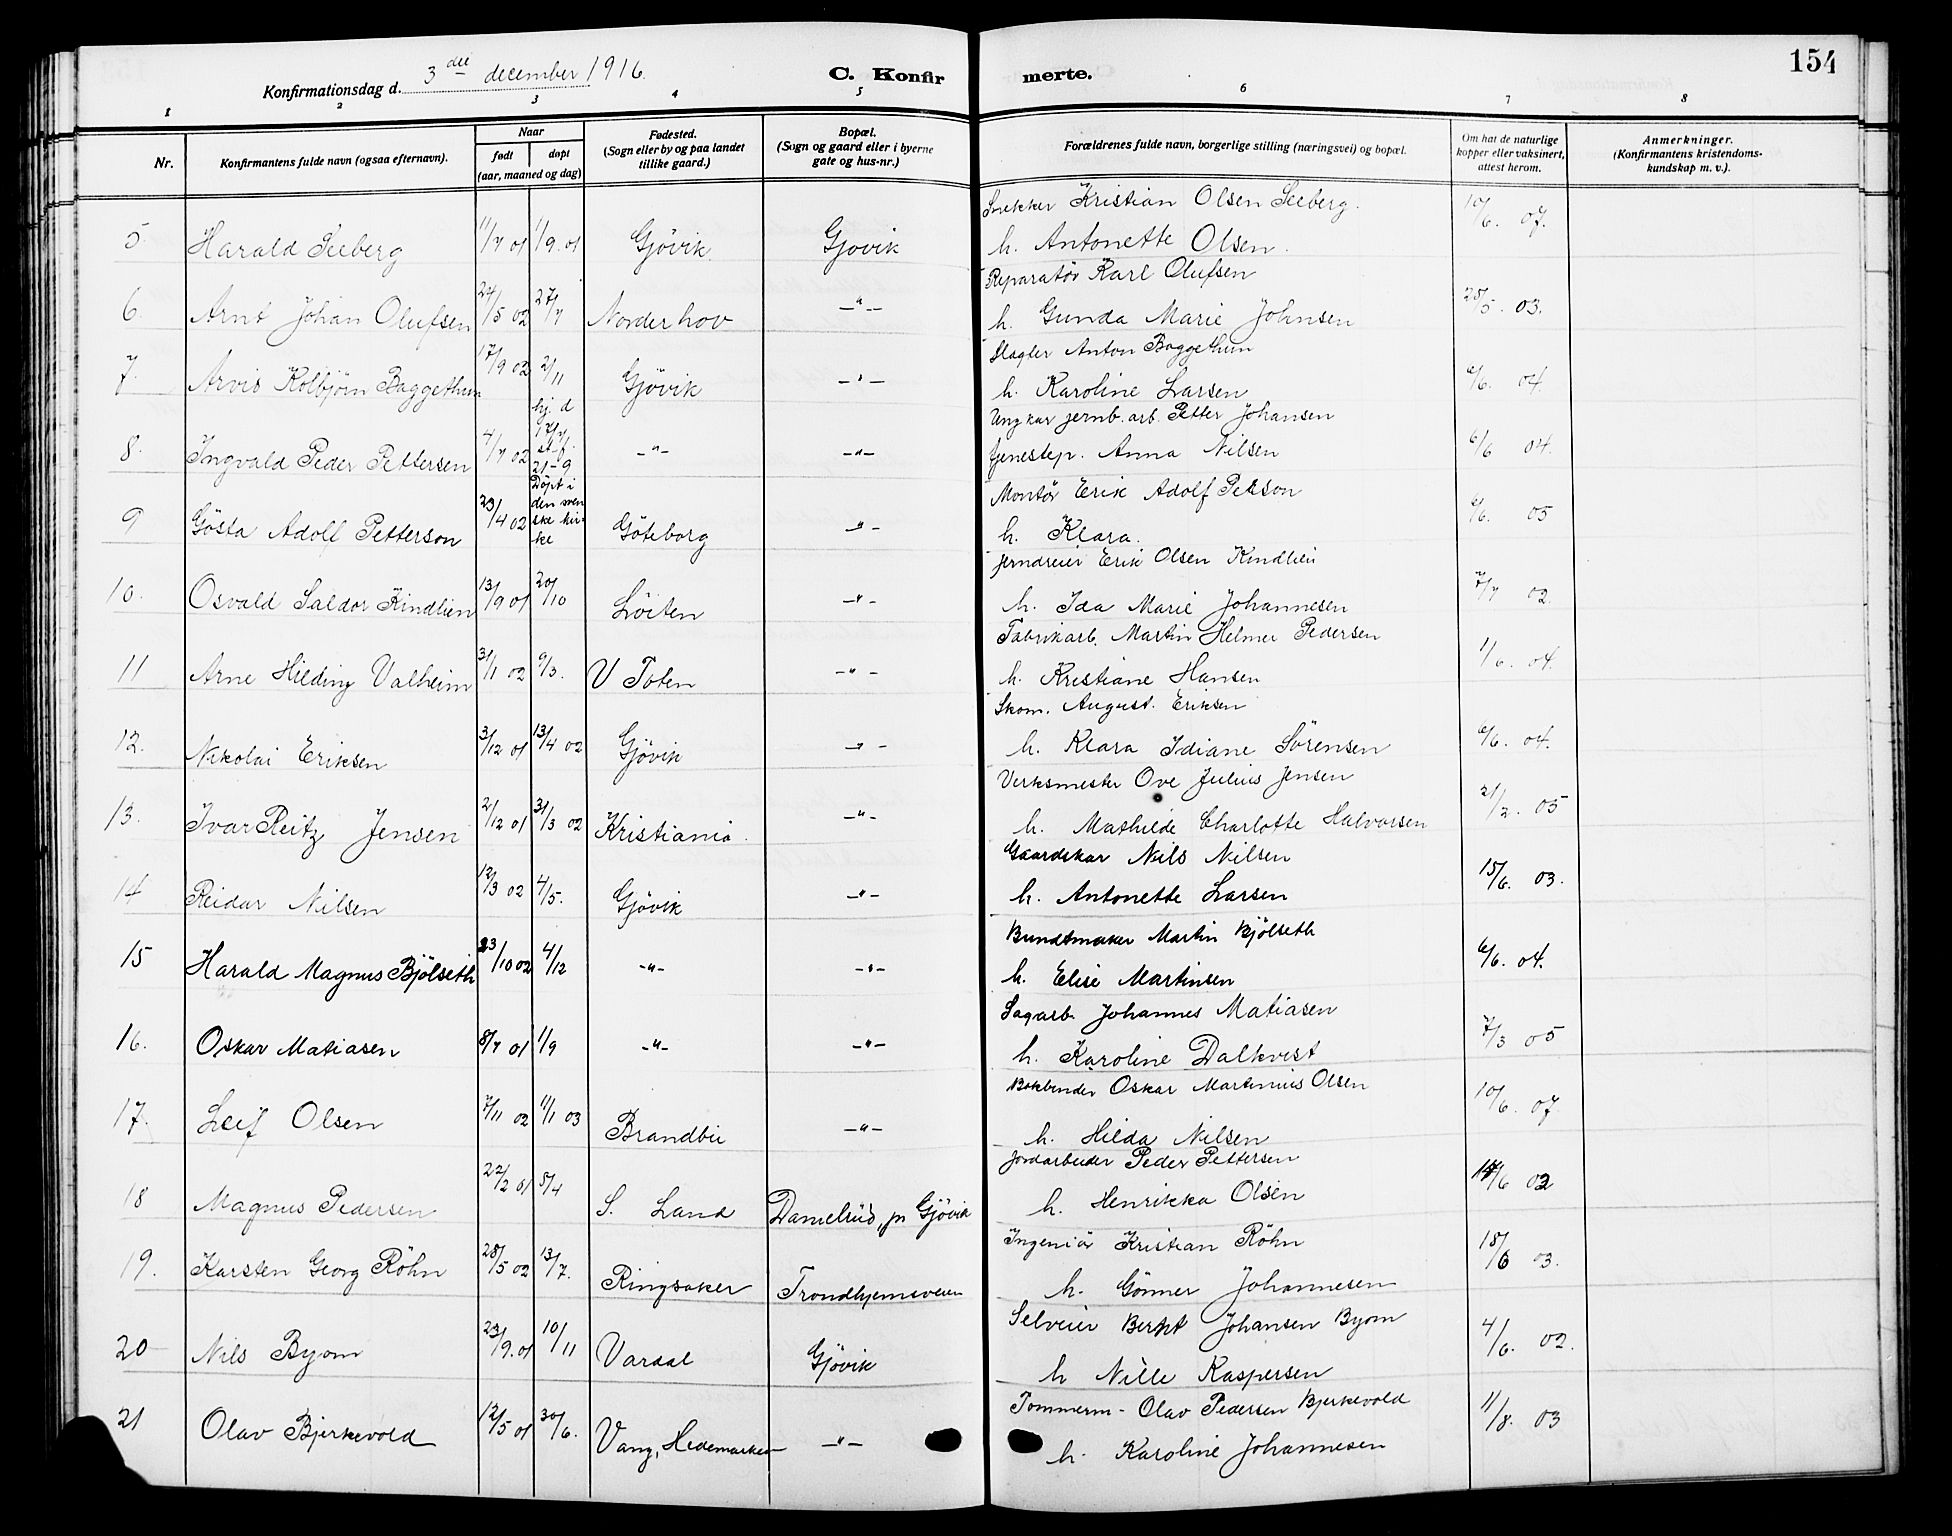 154
Konfirmationsdag d. 3die december 1916.
C. Konfirmerte.
1 2 3 4 5 6 7 8
Nr.
Konfirmantens fulde navn (ogsaa efternavn).
Naar
født
døpt
(aar, maaned og dag)
Fødested.
(Sogn eller by og paa landet
tillike gaard.)
Bopæl.
(Sogn og gaard eller i byerne
gate og hus-nr.)
Forældrenes fulde navn, borgerlige stilling (næringsvei) og bopæl.
Om hat de naturlige
kopper eller vaksinert,
attest herom.
Anmerkninger.
(Konfirmantens kristendoms-
kundskap m. v.).
Snekker Kristian Olsen Seeberg.
5. Harald Seeberg 11/7 01 1/9 01 Gjövik Gjövik h. Antonette Olsen. 10/6. 07.
Reparatör Karl Olufsen
6. Arnt Johan Olufsen 24/5 02 27/7 Norderhov -"- h. Gunda Marie Johnsen 25/5. 03.
Slagter Anton Baggethun
7. Arvid Kolbjörn Baggethun 17/9 02 2/11 Gjövik -"- h. Karoline Larsen 6/6. 04
Ungkar jernb. arb. Petter Johansen
8. Ingvald Peder Pettersen 4/7 02 hj. d 17/7 st.f. 21-9 -"- -"- tjenestep. Anna Nilsen 6/6 04.
Montör Erik Adolf Petson
9 Gösta Adolf Petterson 23/4 02 Döpt i den svenske kirke Göteborg -"- h. Klara. 6/6. 05
Jerndreier Erik Olsen Kindlien
10. Osvald Saldor Kindlien 13/9 01 20/10 Löiten -"- h. Ida Marie Johannesen 7/7 02.
Fabrikarb. Martin Helmer Pedersen
11 Arne Hilding Valheim 31/1 02 9/3. V Toten -"- h. Kristiane Hansen 1/6. 04.
Skom. August. Eriksen
12. Nikolai Eriksen 3/12 01 13/4 02 Gjövik -"- h. Klara Idiane Sörensen 6/6. 04.
Verksmester Ove Julius Jensen
13. Ivar Reitz Jensen 2/12 01 31/3 02 Kristiania. -"- h. Mathilde Charlotte Halvorsen 21/2. 05
Gaardskar Nils Nilsen
14 Reidar Nilsen 12/3 02 4/5. Gjövik -"- h. Antonette Larsen 15/6. 03.
Bundtmaker Martin Bjölseth
15 Harald Magnus Bjölseth 23/10 02 4/12 -"- -"- h. Elise Martinsen 6/6. 04.
Sagarb. Johannes Matiasen
16. Oskar Matiasen 8/7 01 1/9 -"- -"- h. Karoline Dalkvist 7/3 05
Bokbinder Oskar Martinius Olsen
17. Leif Olsen 7/11 02 11/1 03 Brandbu -"- h. Hilda Nilsen 10/6. 07.
Jordarbeider Peder Pettersen
18 Magnus Pedersen 22/2 01 5/4 S. Land Danielrud, pr Gjövik h. Henrikka Olsen 14/6 02
Ingeniör Kristian Röhn
19. Karsten Georg Röhn 28/5 02 13/7. Ringsaker Trondhjemsveien h. Gönner Johannesen 18/6 03.
Selveier Bernt Johansen Byom
20 Nils Byom 23/9. 01 10/11 Vardal Gjövik h Nille Kaspersen 4/6. 02.
Tommerm- Olav Pedersen Bjerkevold
21 Olav Bjerkevold 12/5 01 30/6. Vang, Hedemarken -"- h. Karoline Johannesen 11/8. 03